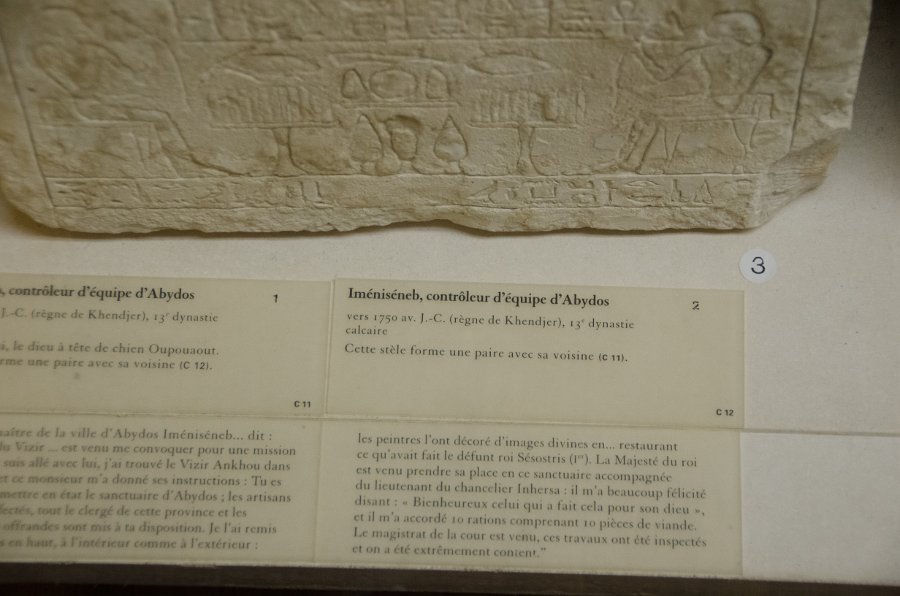 3
, contrôleur d'équipe d'Abydos 1
J.-C. (règne de Khendjer), 13e dynastie
i, le dieu à tête de chien Oupouaout.
rme une paire avec sa voisine (C 12).
C 11
Iméniséneb, contrôleur d'équipe d'Abydos 2
vers 1750 av. J.-C. (règne de Khendjer), 13e dynastie
calcaire
Cette stèle forme une paire avec sa voisine (C 11).
C 12
aître de la ville d'Abydos Iméniséneb... dit :
du Vizir ... est venu me convoquer pour une mission
suis allé avec lui, j'ai trouvé le Vizir Ankhou dans
et ce monsieur m'a donné ses instructions : Tu es
mettre en état le sanctuaire d'Abydos ; les artisans
fectés, tout le clergé de cette province et les
offrandes sont mis à ta disposition. Je l'ai remis
s en haut, à l'intérieur comme à l'extérieur :
les peintres l'ont décoré d'images divines en... restaurant
ce qu'avait fait le défunt roi Sésostris (Ier). La Majesté du roi
est venu prendre sa place en ce sanctuaire accompagnée
du lieutenant du chancelier Inhersa : il m'a beaucoup félicité
disant : « Bienheureux celui qui a fait cela pour son dieu »,
et il m'a accordé 10 rations comprenant 10 pièces de viande.
Le magistrat de la cour est venu, ces travaux ont été inspectés
et on a été extrêmement content."